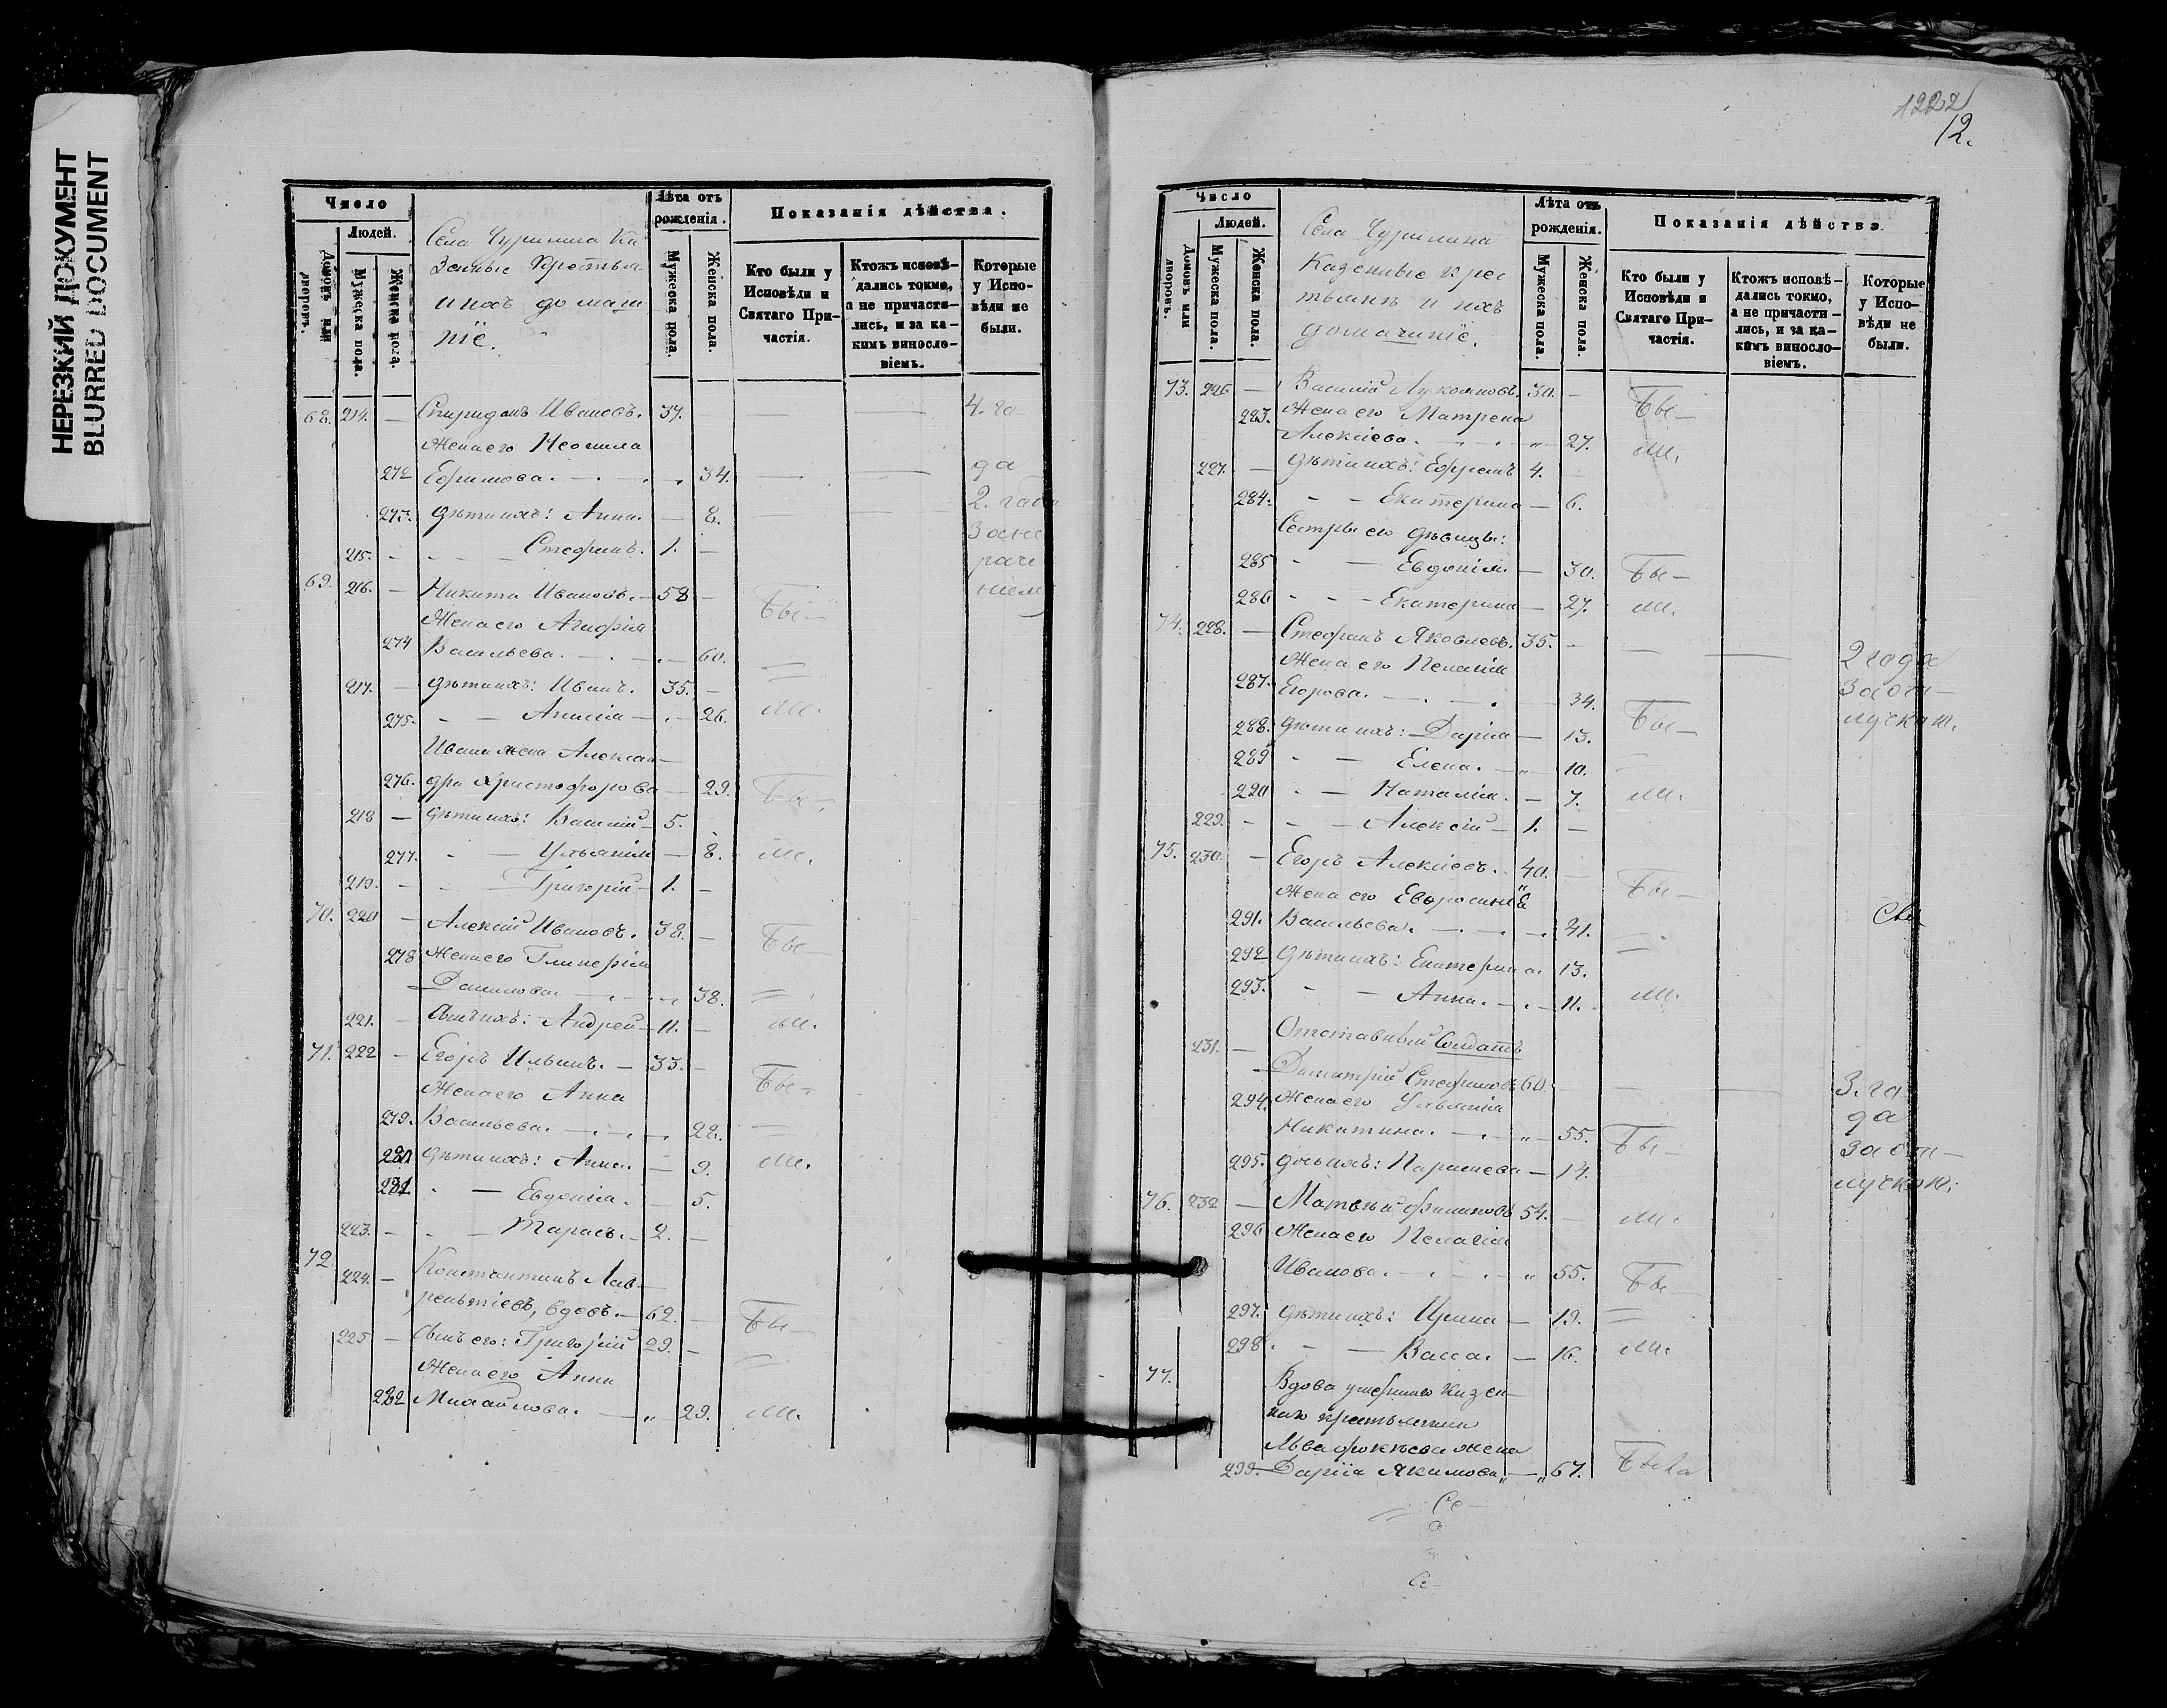 НЕРЕЗКИЙ ДОКУМЕНТ
BLURRED DOCUMENT
Число
Людей.
Домовъ или дворовъ.
Мужеска пола.
Женска пола.
Села Чурилина Ка
зенные Крестья
ихъ домаш
ніе.
Лѣта отъ рожденія.
Мужеска пола.
Женска пола.
Показанія дѣйства.
Кто были у Исповѣди и Святаго Причастія.
Ктожъ исповѣдались токмо, а не причастились, и за какимъ винословіемъ.
Которые у Исповѣди не были.
68. 214. — Спиридонъ Ивановъ. 37. — — 4. го
Жена его
272 Ефимова. — 34. — — да
273. Дѣти ихъ: Анна. — 8. 2. года
215. - - Стефанъ. 1. —
69. 216. — Никита Ивановъ. — 58 — Бы—
Жена его Агафія
274 Васильева. — 60. =
217. — Дѣти ихъ: Иванъ. 35. —
275. - — Анисія — 26. ли.
Ивана жена Алексан—
276. дра Христофорова — 29. Бы—
218 — Дѣти ихъ: Василій — 5.
277. - — Ульянія — 8. ли.
219. - - — Григорій — 1. —
70. 220 — Алексій Ивановъ. 38. — Бы—
278 Жена его Гликерія
Данилова — 38. =
221. — Сынъ ихъ: Андрей — 11. — ли.
71. 222 — Егоръ Ильинъ. — 33. — Бы—
Жена его Анна
279. Васильева. — 22. =
280 Дѣти ихъ: Анна. — 9. ли.
281 - — Евдокія. — 5.
223. - - — Тарасъ. — 2. —
72 224. — Константинъ Лав—
рентіевъ, вдовъ. — 62. — Бы—
225 — Сынъ его: Григорій 29. — =
Жена его Анна
282 Михайлова. — „ 29. ли.
1222
12.
Число
Людей.
Домовъ или дворовъ.
Мужеска пола.
Женска пола.
Села Чурилина
Казенные крес
тьяне и ихъ
домашніе.
Лѣта отъ рожденія.
Мужеска пола.
Женска пола.
Показанія дѣйства.
Кто были у Исповѣди и Святаго Причастія.
Ктожъ исповѣдались токмо, а не причастились, и за какимъ винословіемъ.
Которые у Исповѣди не были.
73. 226 — Василій Лукояновъ. 30. — Бы—
283. Жена его Матрена
Алексіева. — „ 27. ли.
227. — Дѣти ихъ: Ефремъ 4.
284. - — Екатерина — 6.
Сестры его дѣвицы:
285 - — Евдокія. — 30. Бы—
286 - - — Екатерина — 27. ли.
74. 228. — Стефанъ Яковлевъ. 35. — — — 2 года
Жена его Пелагія за от—
287. Егорова. — 34. лучкою.
288. Дѣти ихъ: Дарія — 13. Бы—
289 - — Елена. — „ 10. =
290 - — Наталія. — 7. ли.
229. - - — Алексій — 1. —
75. 230. — Егоръ Алексіевъ. 40. — Бы—
Жена его Евфросинія
291. Васильева. — 41. =
292 Дѣти ихъ: Екатерина. 13.
293. - — Анна. — 11. ли.
Отставный Солдатъ
231. — Димитрій Стефановъ 60. — — 3. го
294. Жена его Ульянія да
Никитина. — „ 55. Бы— за от—
295. Дочь ихъ: — 14. лучкою.
76. 232 — Матвѣй Филиповъ 54. — ли.
296 Жена его Пелагія
Иванова. — „ 55. Бы—
297. Дѣти ихъ: Ирина — 19. =
298 - — Васса. — 16. ли.
77. Вдова умершаго казен—
наго крестьянина
Льва Фокѣева жена
299. Дарія Якимова „ — „ 67. Была